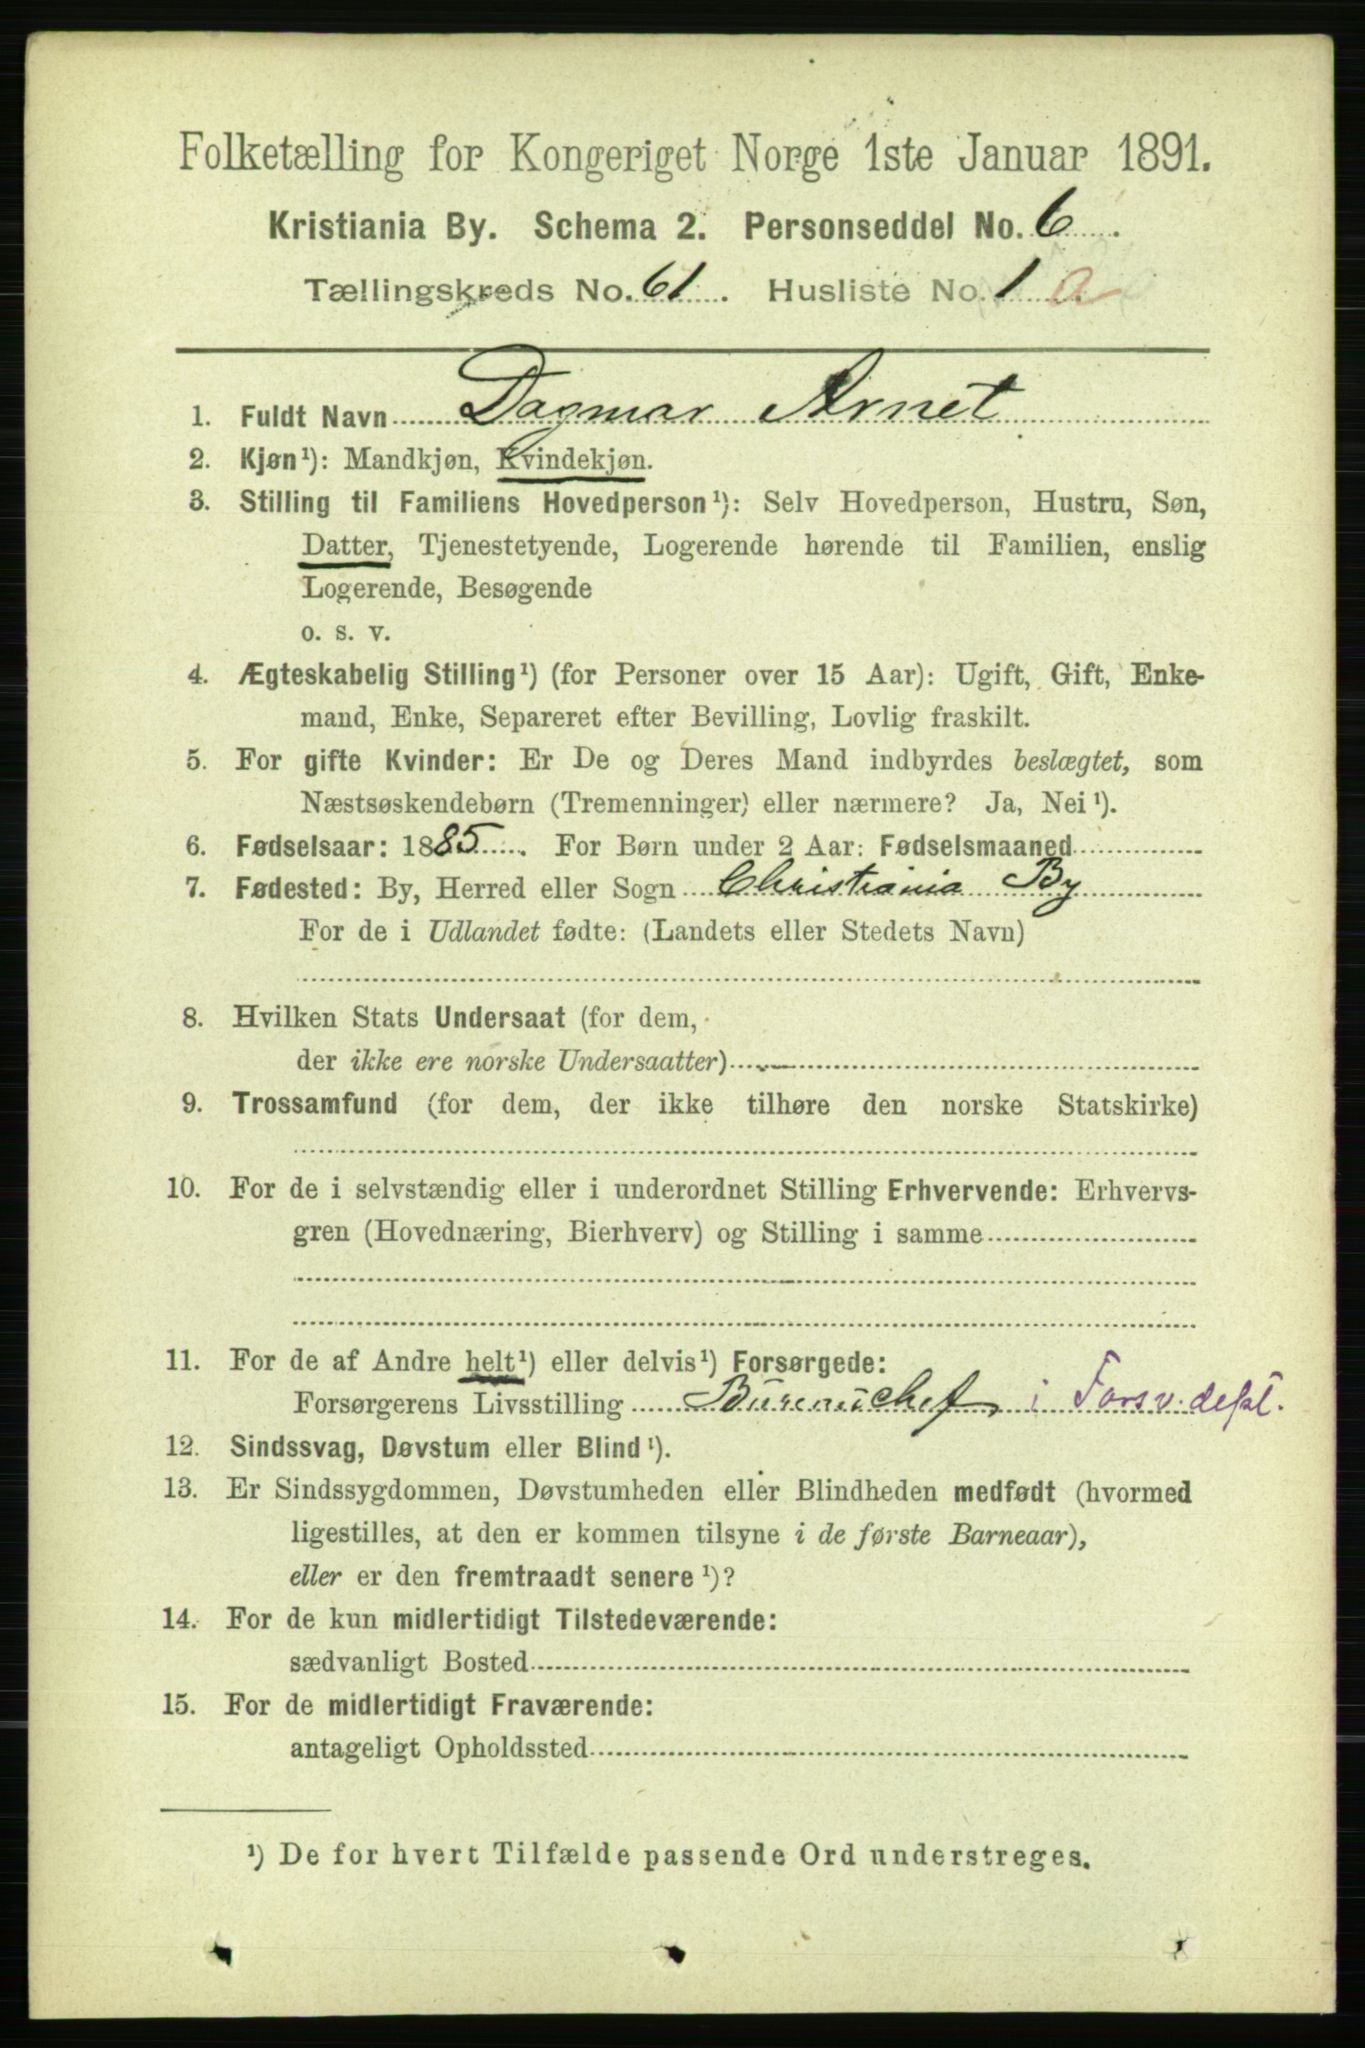 Folketælling for Kongeriget Norge 1ste Januar 1891.
Kristiania By. Schema 2. Personseddel No. 6.
Tællingskreds No. 61. Husliste No. 1 a
1. Fuldt Navn Dagmar Arnet
2. Kjøn¹): Mandkjøn, Kvindekjøn.
3. Stilling til Familiens Hovedperson¹): Selv Hovedperson, Hustru, Søn,
Datter, Tjenestetyende, Logerende hørende til Familien, enslig
Logerende, Besøgende
o. s. v.
4. Ægteskabelig Stilling¹) (for Personer over 15 Aar): Ugift, Gift, Enke-
mand, Enke, Separeret efter Bevilling, Lovlig fraskilt.
5. For gifte Kvinder: Er De og Deres Mand indbyrdes beslægtet, som
Næstsøskendebørn (Tremenninger) eller nærmere? Ja, Nei¹).
6. Fødselsaar: 1885. For Børn under 2 Aar: Fødselsmaaned
7. Fødested: By, Herred eller Sogn Christiania By
For de i Udlandet fødte: (Landets eller Stedets Navn)
8. Hvilken Stats Undersaat (for dem,
der ikke ere norske Undersaatter)
9. Trossamfund (for dem, der ikke tilhøre den norske Statskirke)
10. For de i selvstændig eller i underordnet Stilling Erhvervende: Erhvervs-
gren (Hovednæring, Bierhverv) og Stilling i samme
11. For de af Andre helt¹) eller delvis¹) Forsørgede:
Forsørgerens Livsstilling Bureauchef, i Forsv. dept.
12. Sindssvag, Døvstum eller Blind¹).
13. Er Sindssygdommen, Døvstumheden eller Blindheden medfødt (hvormed
ligestilles, at den er kommen tilsyne i de første Barneaar),
eller er den fremtraadt senere¹)?
14. For de kun midlertidigt Tilstedeværende:
sædvanligt Bosted
15. For de midlertidigt Fraværende:
antageligt Opholdssted
¹) De for hvert Tilfælde passende Ord understreges.